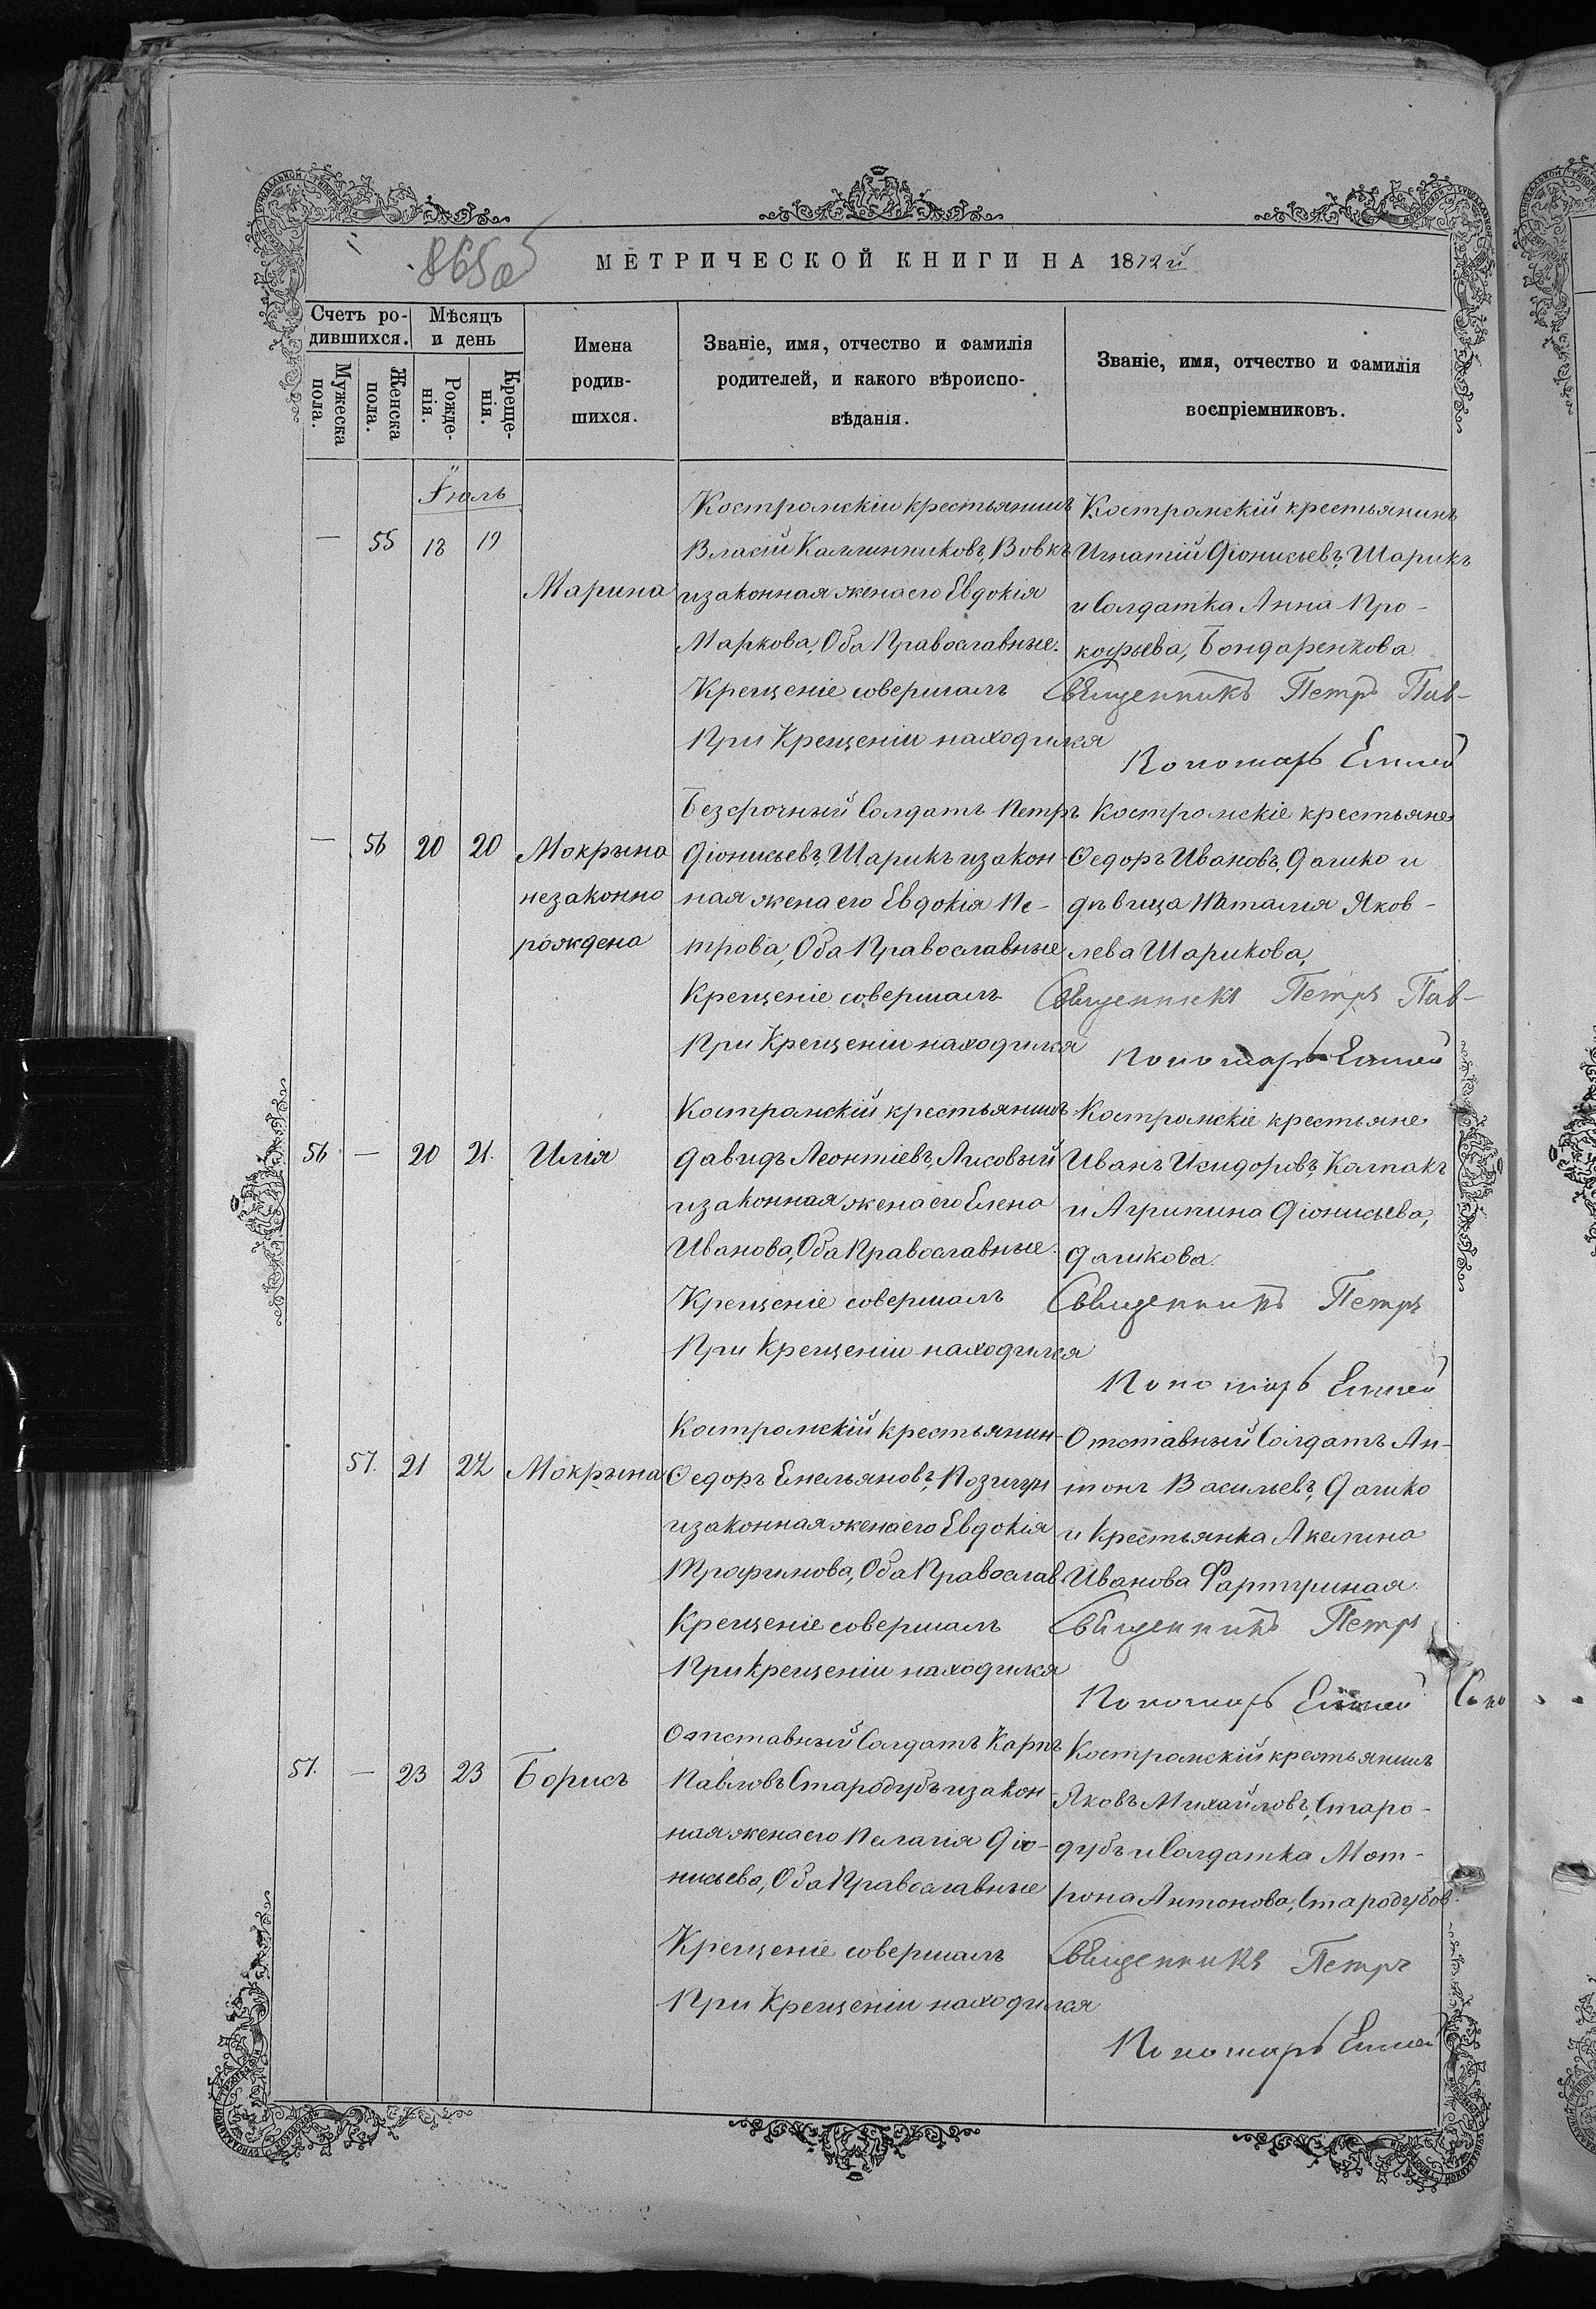 865об
МЕТРИЧЕСКОЙ КНИГИ НА 1872й
Счетъ ро-
дившихся.
Мѣсяцъ
и день
Имена
родив-
шихся.
Званіе, имя, отчество и фамилія
родителей, и какого вѣроиспо-
вѣданія.
Званіе, имя, отчество и фамилія
воспріемниковъ.
Мужеска
пола.
Женска
пола.
Рожде-
нія.
Креще-
нія.
Іюль
— 55 18 19
Марина
Костромскій крестьянинъ
Власій Каллинниковъ, Вовкъ
и законная жена его Евдокія
Маркова, Оба Православные.
Костромскій крестьянинъ
Игнатій Діонисьевъ, Шарикъ
и Солдатка Анна Про-
кофьева, Бондаренкова
Крещеніе совершалъ Священникъ Петръ Пав-
При Крещеніи находился
Пономарь
— 56 20 20 Мокрына
незаконно
рождена
Безсрочный Солдатъ Петръ
Діонисьевъ, Шарикъ и закон-
ная жена его Евдокія Пе-
трова, Оба Православные
Костромскіе крестьяне
Ѳедоръ Ивановъ, Дашко и
дѣвица Наталія Яков-
лева Шарикова,
Крещеніе совершалъ Священникъ Петръ Пав-
При Крещеніи находился
Пономарь
56 — 20 21. Илія
Костромскій крестьянинъ
Давидъ Леонтіевъ, Лисовый
и законная жена его Елена
Иванова, Оба Православные.
Костромскіе крестьяне
Иванъ Исидоровъ, Калпакъ
и Агрипина Діонисьева,
Дашкова.
Крещеніе совершалъ Священникъ Петръ
При Крещеніи находился
Пономарь
57. 21 22 Мокрына
Костромскій крестьянин-
Ѳедоръ Емельяновъ, Позигун
и законная жена его Евдокія
Трофимова, Оба Православ
Отставный Солдатъ Ан-
тонъ Васильевъ, Дашко
и Крестьянка Акелина
Иванова Фартушная.
Крещеніе совершалъ Священникъ Петръ
При Крещеніи находился
Пономарь
57. — 23 23 Борисъ
Отставный Солдатъ Карпъ
Павловъ Стародубъ и закон-
ная жена его Пелагія Діо-
нисьева, Оба Православные
Костромскій крестьянинъ
Яковъ Михайловъ, Старо-
дубъ и Солдатка Мот-
рона Антонова, Стародубов.
Крещеніе совершалъ Священникъ Петръ
При Крещеніи находился
Пономарь